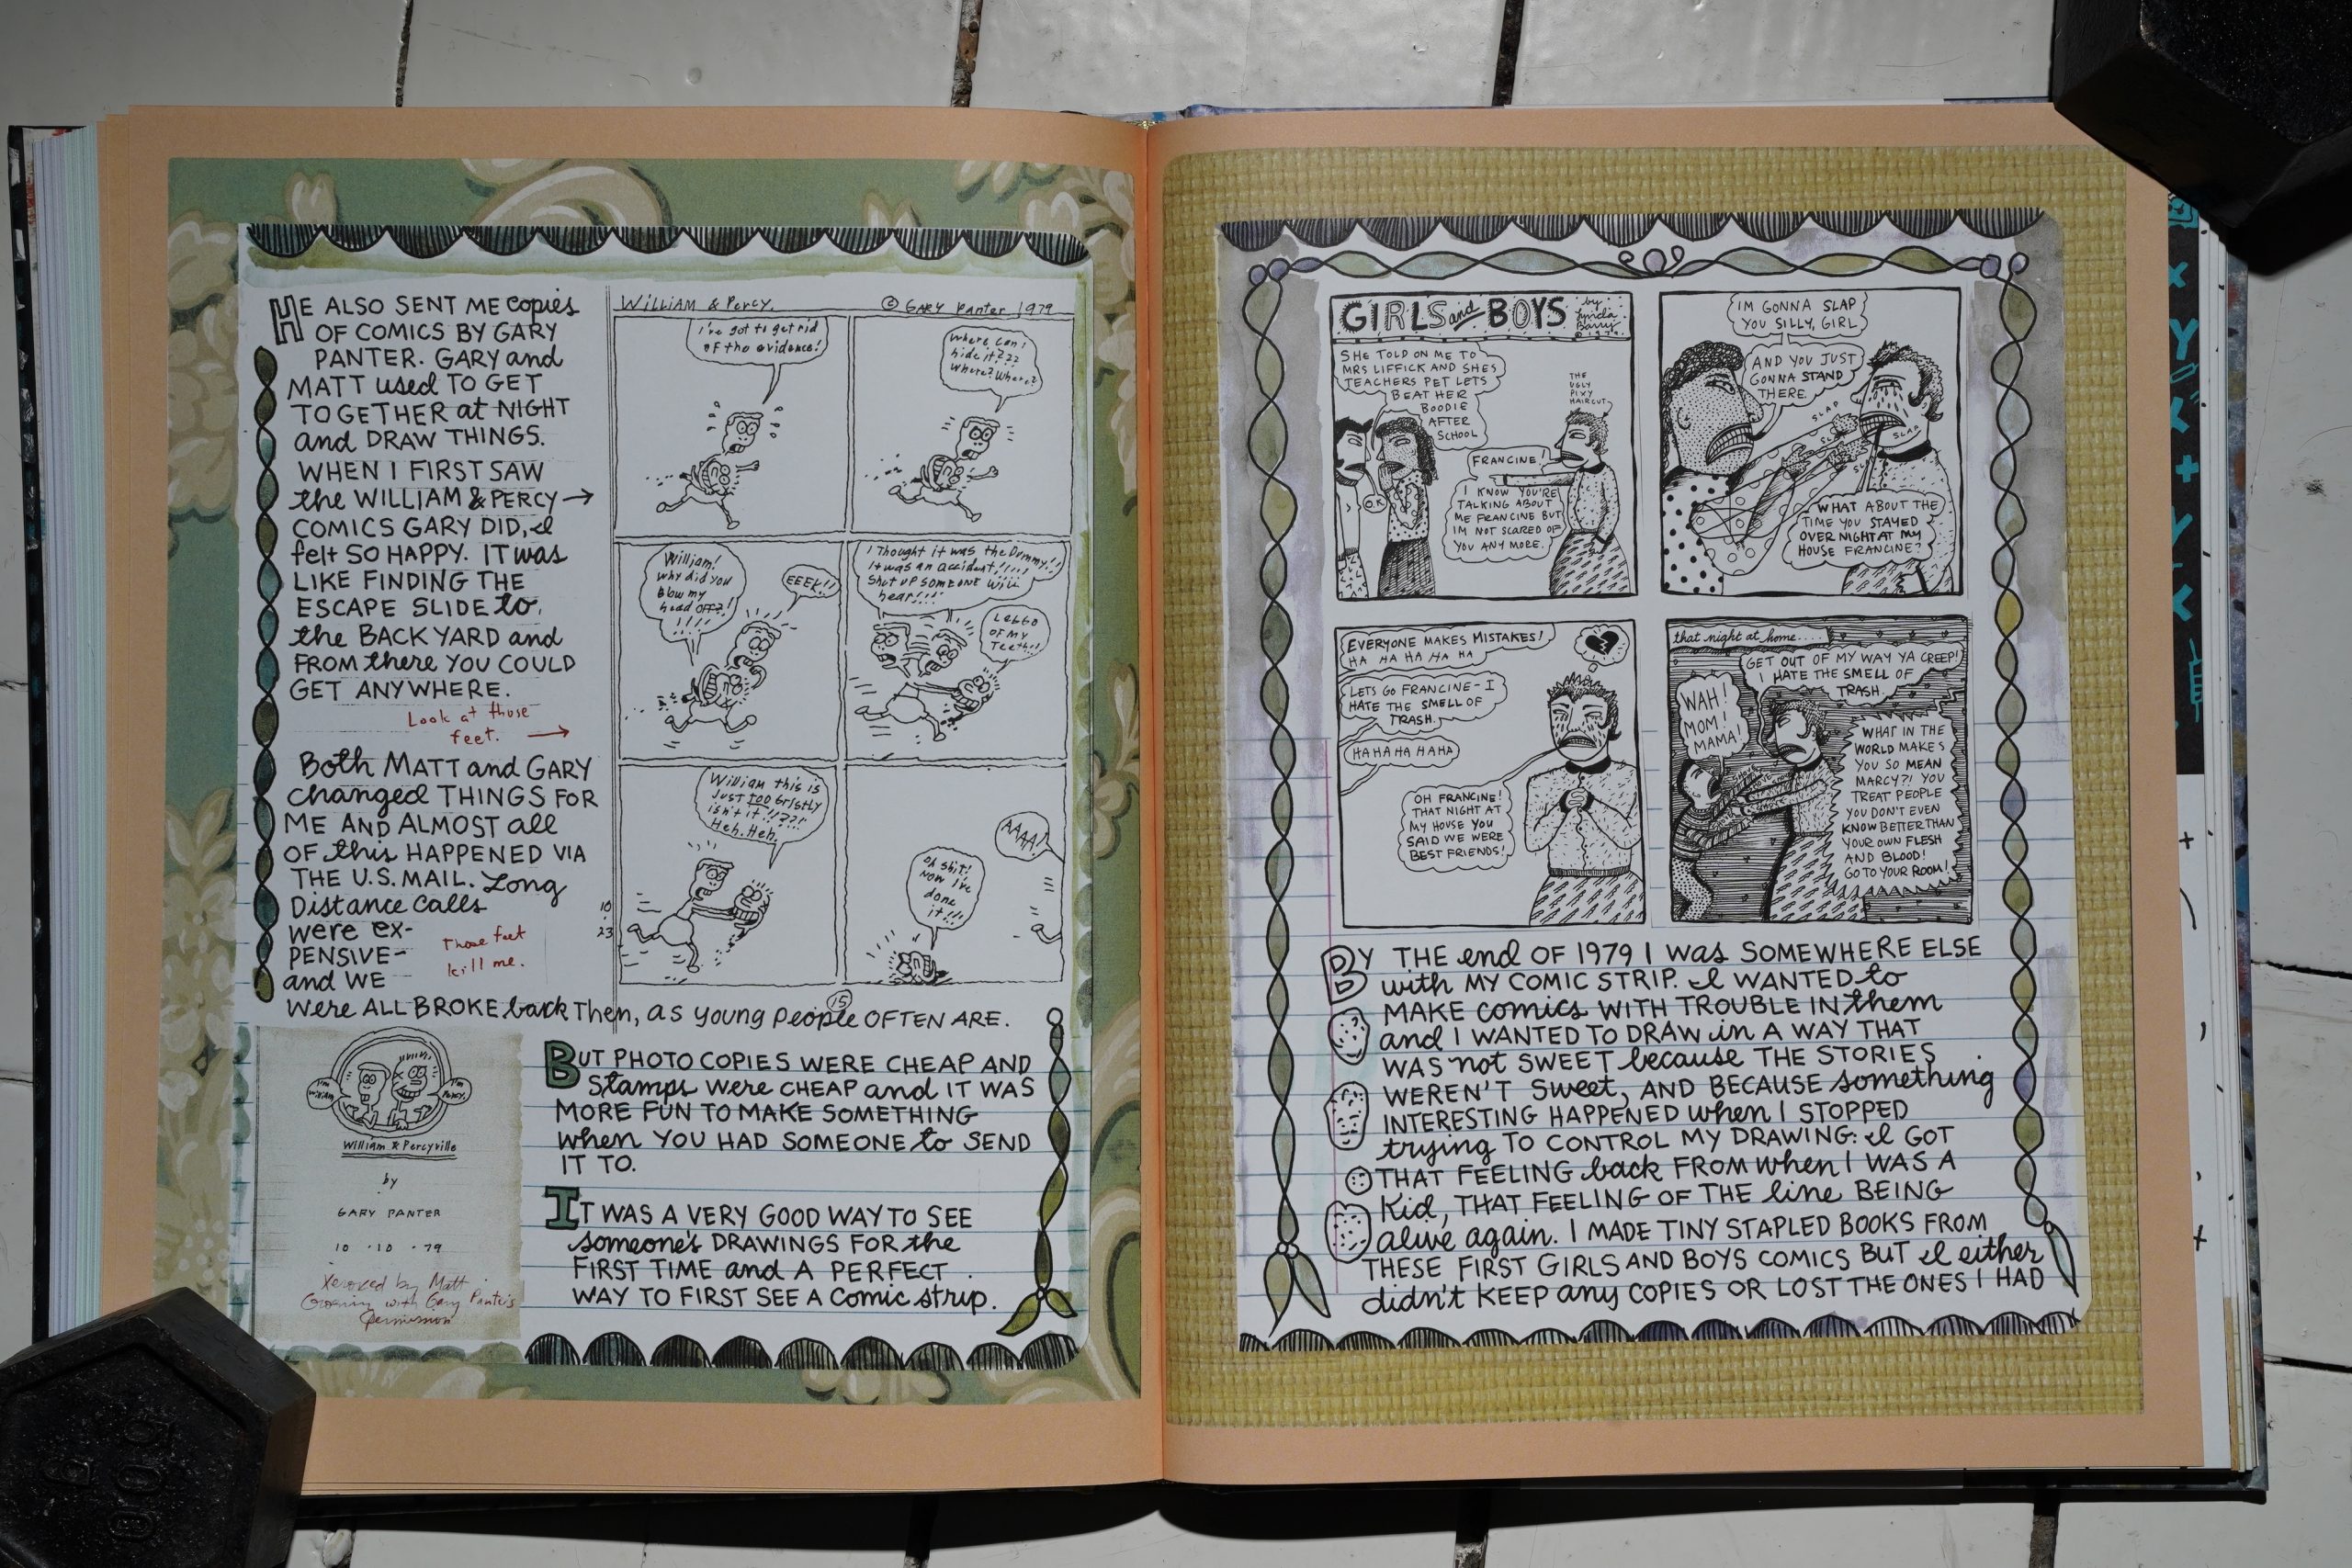 HE ALSO SENT ME copies
OF COMICS BY GARY
PANTER. GARY and
MATT used TO GET
TOGETHER at NIGHT
and DRAW THINGS.
WHEN I FIRST SAW
the WILLIAM & PERCY →
COMICS GARY DID, I
felt SO HAPPY. IT was
LIKE FINDING THE
ESCAPE SLIDE to
the BACK YARD and
FROM there YOU COULD
GET ANYWHERE.
Look at those
feet. →
Both MATT and GARY
changed THINGS FOR
ME AND ALMOST all
OF this HAPPENED VIA
THE U.S. MAIL. Long
Distance Calls
were ex-
PENSIVE-
and WE
Those feet
kill me.
were ALL BROKE back Then, as young people OFTEN ARE.
William & Percy.
© GARY Panter 1979
I've got to get rid
of the evidence!
Where can I
hide it???
Where? Where?
William!
why did you
blow my
head off?!
!!!!
EEEK!!
I Thought it was the Dummy!!
It was an accident!!!!!
Shut up someone will
hear!!!!
Leggo
of my
Teeth!!
William this is
Just too Gristly
isn't it!!??!
Heh. Heh.
Oh shit!
Now I've
done
it!!!
AAAA!
10
23
15
I'm
William
I'm
Percy.
William & Percyville
by
GARY PANTER
10 · 10 · 79
Xeroxed by Matt
Groening with Gary Panter's
Permission
BUT PHOTO COPIES WERE CHEAP AND
Stamps were CHEAP and IT WAS
MORE FUN TO MAKE SOMETHING
when YOU HAD SOMEONE to SEND
IT TO.
IT WAS A VERY GOOD WAY TO SEE
someone's DRAWINGS FOR the
FIRST TIME and A PERFECT
WAY TO FIRST SEE A Comic strip.
GIRLS and BOYS
by
Lynda
Barry
© 1979
SHE TOLD ON ME TO
MRS LIFFICK AND SHES
TEACHERS PET LETS
BEAT HER
BOODIE
AFTER
SCHOOL
O.K.
THE
UGLY
PIXY
HAIRCUT
FRANCINE!
I KNOW YOU'RE
TALKING ABOUT
ME FRANCINE BUT
IM NOT SCARED OF
YOU ANY MORE.
IM GONNA SLAP
YOU SILLY, GIRL
AND YOU JUST
GONNA STAND
THERE.
SLAP
SLAP
WHAT ABOUT THE
TIME YOU STAYED
OVER NIGHT AT MY
HOUSE FRANCINE?
EVERYONE MAKES MISTAKES!
HA HA HA HA HA
LETS GO FRANCINE - I
HATE THE SMELL OF
TRASH.
HA HA HA HA HA
OH FRANCINE!
THAT NIGHT AT
MY HOUSE YOU
SAID WE WERE
BEST FRIENDS!
that night at home....
GET OUT OF MY WAY YA CREEP!
I HATE THE SMELL OF
TRASH.
WAH!
MOM!
MAMA!
WHAT IN THE
WORLD MAKES
YOU SO MEAN
MARCY?! YOU
TREAT PEOPLE
YOU DON'T EVEN
KNOW BETTER THAN
YOUR OWN FLESH
AND BLOOD!
GO TO YOUR ROOM!
BY THE end OF 1979 I was SOMEWHERE ELSE
with MY COMIC STRIP. I WANTED to
MAKE comics WITH TROUBLE IN them
and I WANTED TO DRAW in A WAY THAT
WAS not SWEET because THE STORIES
WEREN'T sweet, AND BECAUSE something
INTERESTING HAPPENED when I STOPPED
trying TO CONTROL MY DRAWING: I GOT
THAT FEELING back FROM when I WAS A
Kid, THAT FEELING OF THE line BEING
alive again. I MADE TINY STAPLED BOOKS FROM
THESE FIRST GIRLS AND BOYS COMICS BUT I either
didn't KEEP any COPIES OR LOST THE ONES I HAD